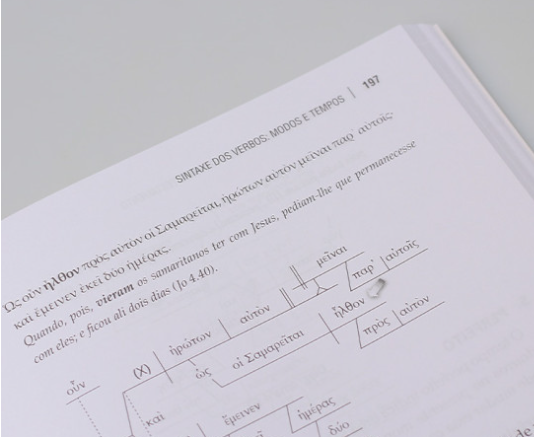 SINTAXE DOS VERBOS: MODOS E TEMPOS | 197
Ὡς οὖν ἦλθον πρὸς αὐτὸν οἱ Σαμαρεῖται, ἠρώτων αὐτὸν μεῖναι παρ᾽ αὐτοῖς·
καὶ ἔμεινεν ἐκεῖ δύο ἡμέρας.
Quando, pois, vieram os samaritanos ter com Jesus, pediam-lhe que permanecesse
com eles; e ficou ali dois dias (Jo 4.40).
μεῖναι
παρ᾽ αὐτοῖς
(X) ἠρώτων αὐτὸν
ὡς οἱ Σαμαρεῖται ἦλθον
πρὸς αὐτὸν
οὖν
καὶ
ἔμεινεν ἡμέρας
δύο